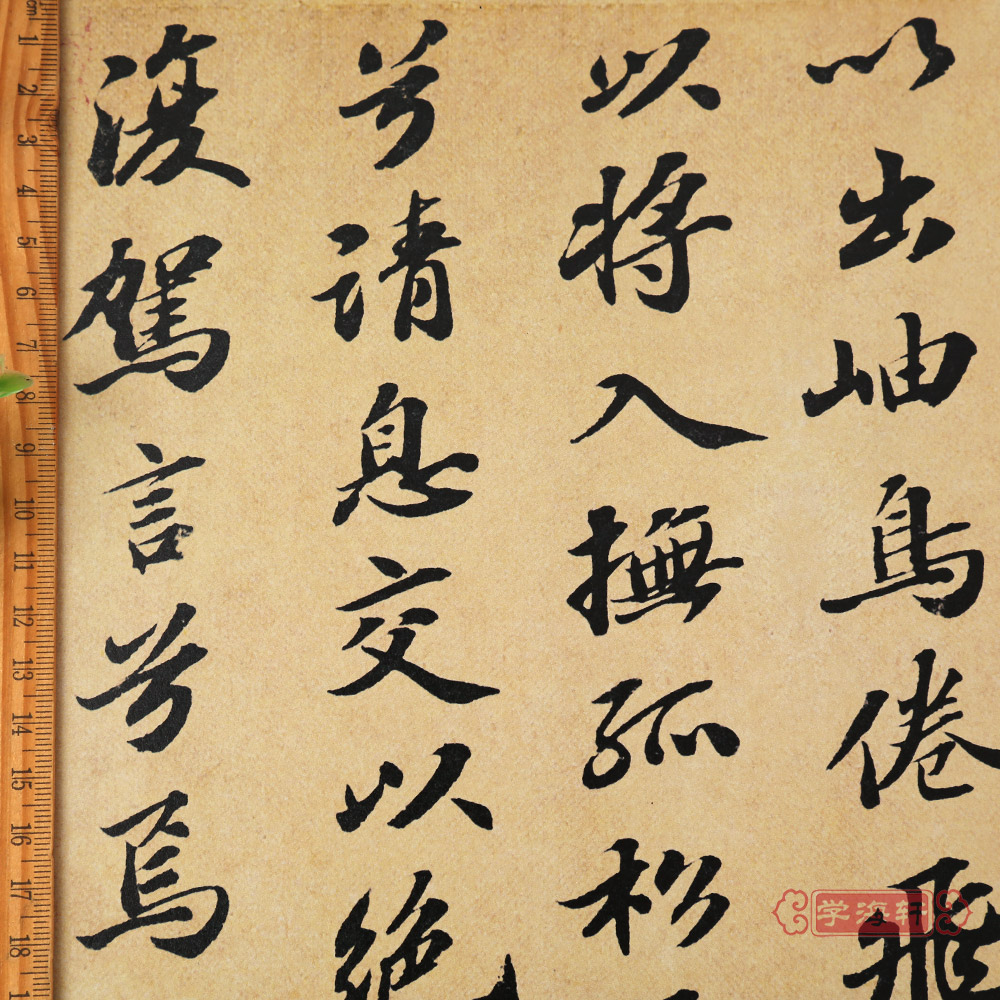 以出岫鳥倦飛
以将入撫孤松
兮請息交以絶
復駕言兮焉
学海轩
cm 1 2 3 4 5 6 7 8 9 10 11 12 13 14 15 16 17 18